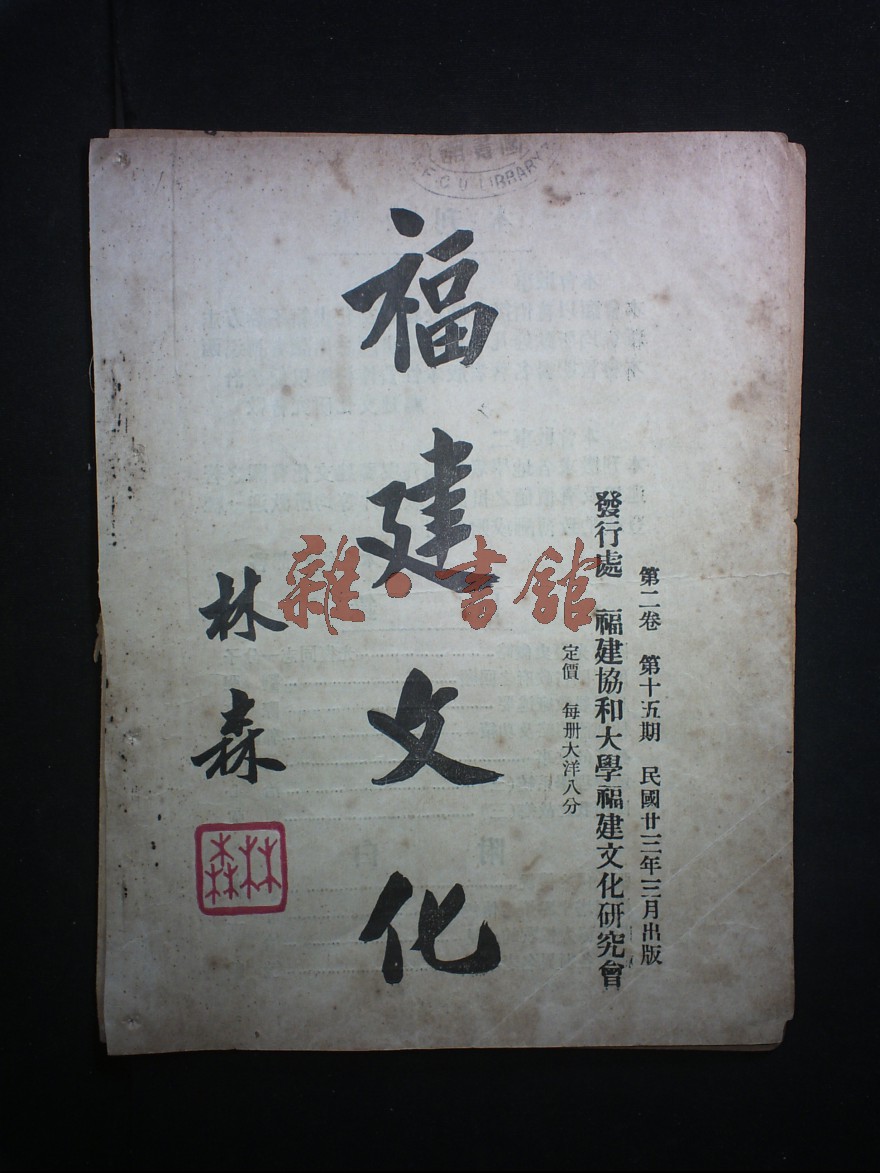 第二卷　第十五期　民國廿三年三月出版
發行處　福建協和大學福建文化研究會
定價　每册大洋八分
福建文化
林森
林森
雜·書館
圖書館
F.C.U LIBRARY